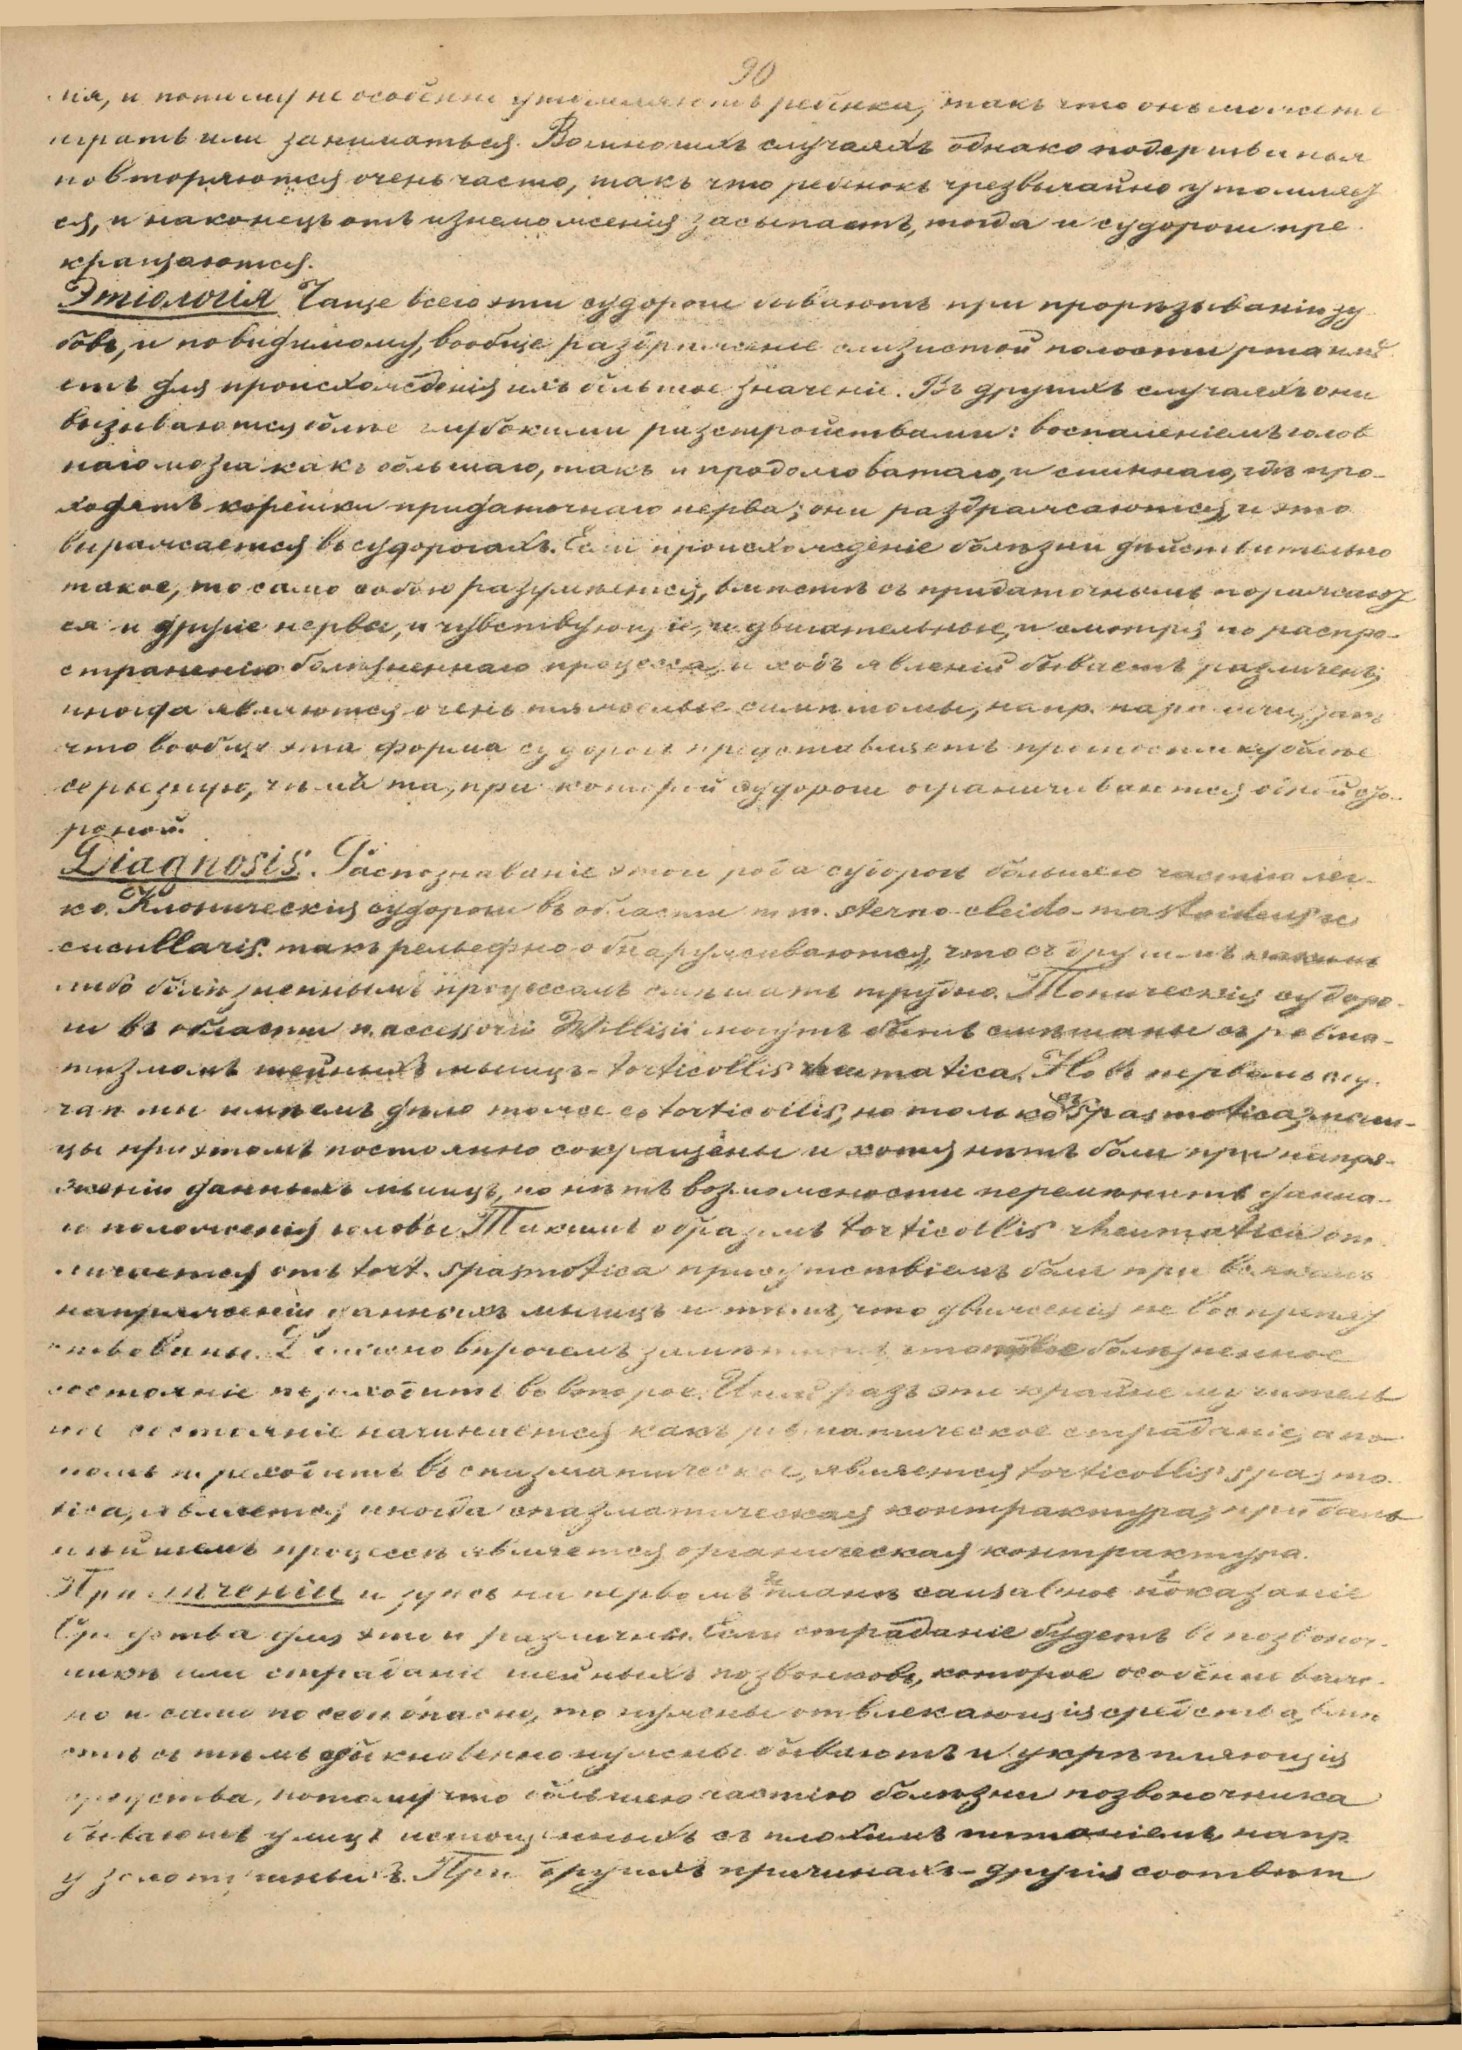 90
нія, и потому не особенно утомляютъ ребенка, такъ что онъ можетъ
играть или заниматься. Во многихъ случаяхъ однако подергиванія
повторяются очень часто, такъ что ребенокъ чрезвычайно утомляет
ся, и наконецъ отъ изнеможенія засыпаетъ, тогда и судороги пре
кращаются.
Этіологія Чаще всего эти судороги бываютъ при прорѣзываніи зу
бовъ, и повидимому, вообще раздраженіе слизистой полости рта имѣ
етъ для происхожденія ихъ большое значеніе. Въ другихъ случаяхъ они
вызываются болѣе глубокими разстройствами: воспаленіемъ голов
наго мозга какъ большаго, такъ и продолговатаго, и спиннаго, гдѣ про-
ходятъ корешки придаточнаго нерва; они раздражаются, и это
выражается въ судорогахъ. Если происхожденіе болѣзни дѣйствительно
такое, то само собою разумѣется, вмѣстѣ съ придаточнымъ поражают
ся и другіе нервы, и чувствующіе, и двигательные, и смотря по распро-
страненію болѣзненнаго процесса, и ходъ явленій бываетъ различенъ;
иногда являются очень тяжелые симптомы, напр. параличи,
что вообще эта форма судорогъ представляетъ прогностику болѣе
серьезную, чѣмъ та, при которой судороги ограничиваются одной сто-
роной.
Diagnosis. Распознаваніе этого рода судорогъ большею частію лег-
ко. Клоническія судороги въ области m.m. sterno-cleido-mastoideus и
cucullaris. такъ рельефно обнаруживаются, что съ другимъ какимъ
либо болѣзненнымъ процессомъ смѣшать трудно. Тоническія судоро-
ги въ области n. accessorii Willisii могутъ быть смѣшаны съ ревма-
тизмомъ шейныхъ мышцъ - torticollis rheumatica. Но въ первомъ слу.
чаѣ мы имѣемъ дѣло тоже съ torticollis, но только съ spasmotica, мыш-
цы при этомъ постоянно сокращены и хотя нѣтъ боли при напря-
женіи данныхъ мышцъ, но нѣтъ возможности перемѣнить данна-
го положенія головы. Такимъ образомъ torticollis rheumatica от
личается отъ tort. spasmotica присутствіемъ боли при всякомъ
напряженіи данныхъ мышцъ и тѣмъ, что движенія не воспрепят
ствованы. Должно впрочемъ замѣтить, что первое болѣзненное
состояніе переходитъ во второе. Иной разъ эти крайне мучитель
ное состояніе начинается какъ ревматическое страданіе, а по
томъ переходитъ въ спазматическое, является torticollis spasmo
tica, является иногда спазматическая контрактура; при даль
нѣйшемъ процессѣ является органическая контрактура.
При леченіи и здѣсь на первомъ планѣ causalное показаніе
Средства для этого различны. Если страданіе будетъ въ позвоноч-
никѣ или страданіе шейныхъ позвонковъ, которое особенно важ-
но и само по себѣ опасно, то нужны отвлекающія средства, вмѣ
стѣ съ тѣмъ обыкновенно нужны бываютъ и укрѣпляющія
средства, потому что большею частію болѣзни позвоночника
бываютъ у лицъ истощенныхъ съ плохимъ питаніемъ, напр
у золотушныхъ. При другихъ причинахъ - другія соотвѣт